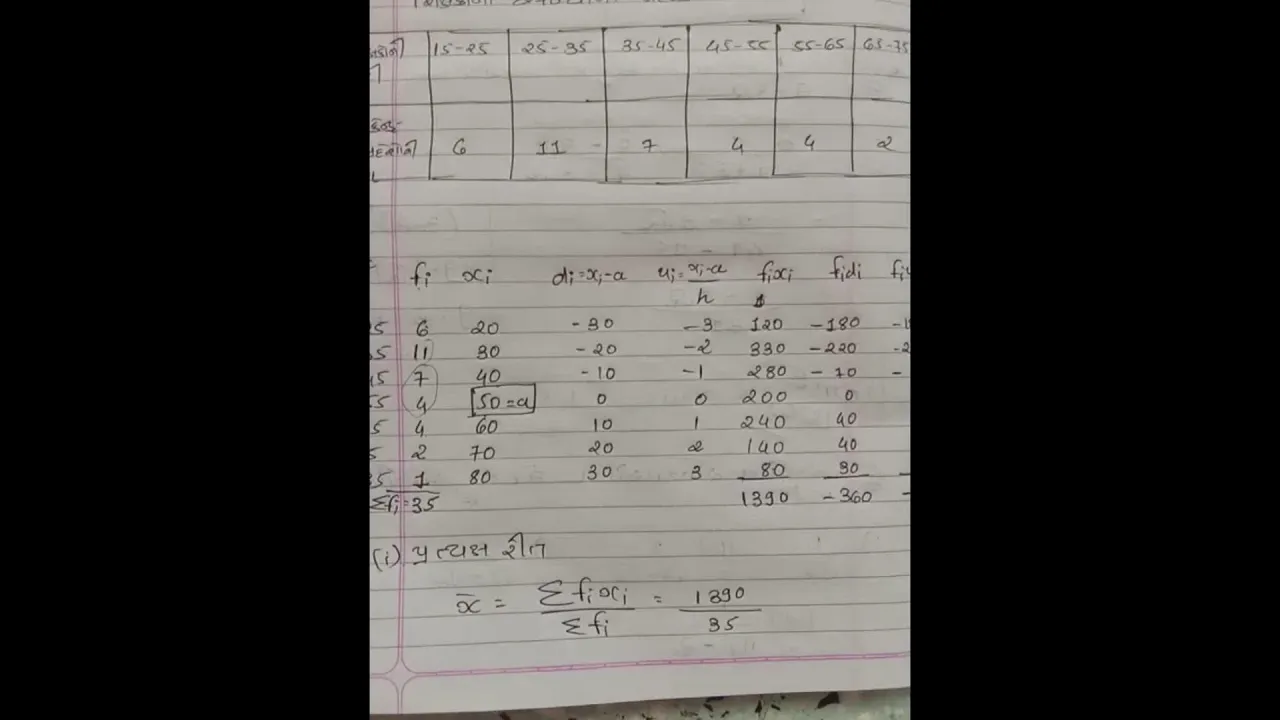 15-25 25-35 35-45 45-55 55-65 65-75
6 11 7 4 4 2
fi xi di=xi-a ui=xi-a/h fixi fidi
5 6 20 -30 -3 120 -180
5 11 30 -20 -2 330 -220
5 7 40 -10 -1 280 -70
5 4 50=a 0 0 200 0
5 4 60 10 1 240 40
5 2 70 20 2 140 40
5 1 80 30 3 80 30
Σfi=35 1390 -360
(i) પ્રત્યક્ષ રીત
x̄ = Σfixi/Σfi = 1390/35